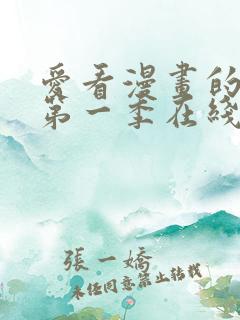 愛看漫畫的
第一季在綫
張一嬌
未經同意禁止轉載